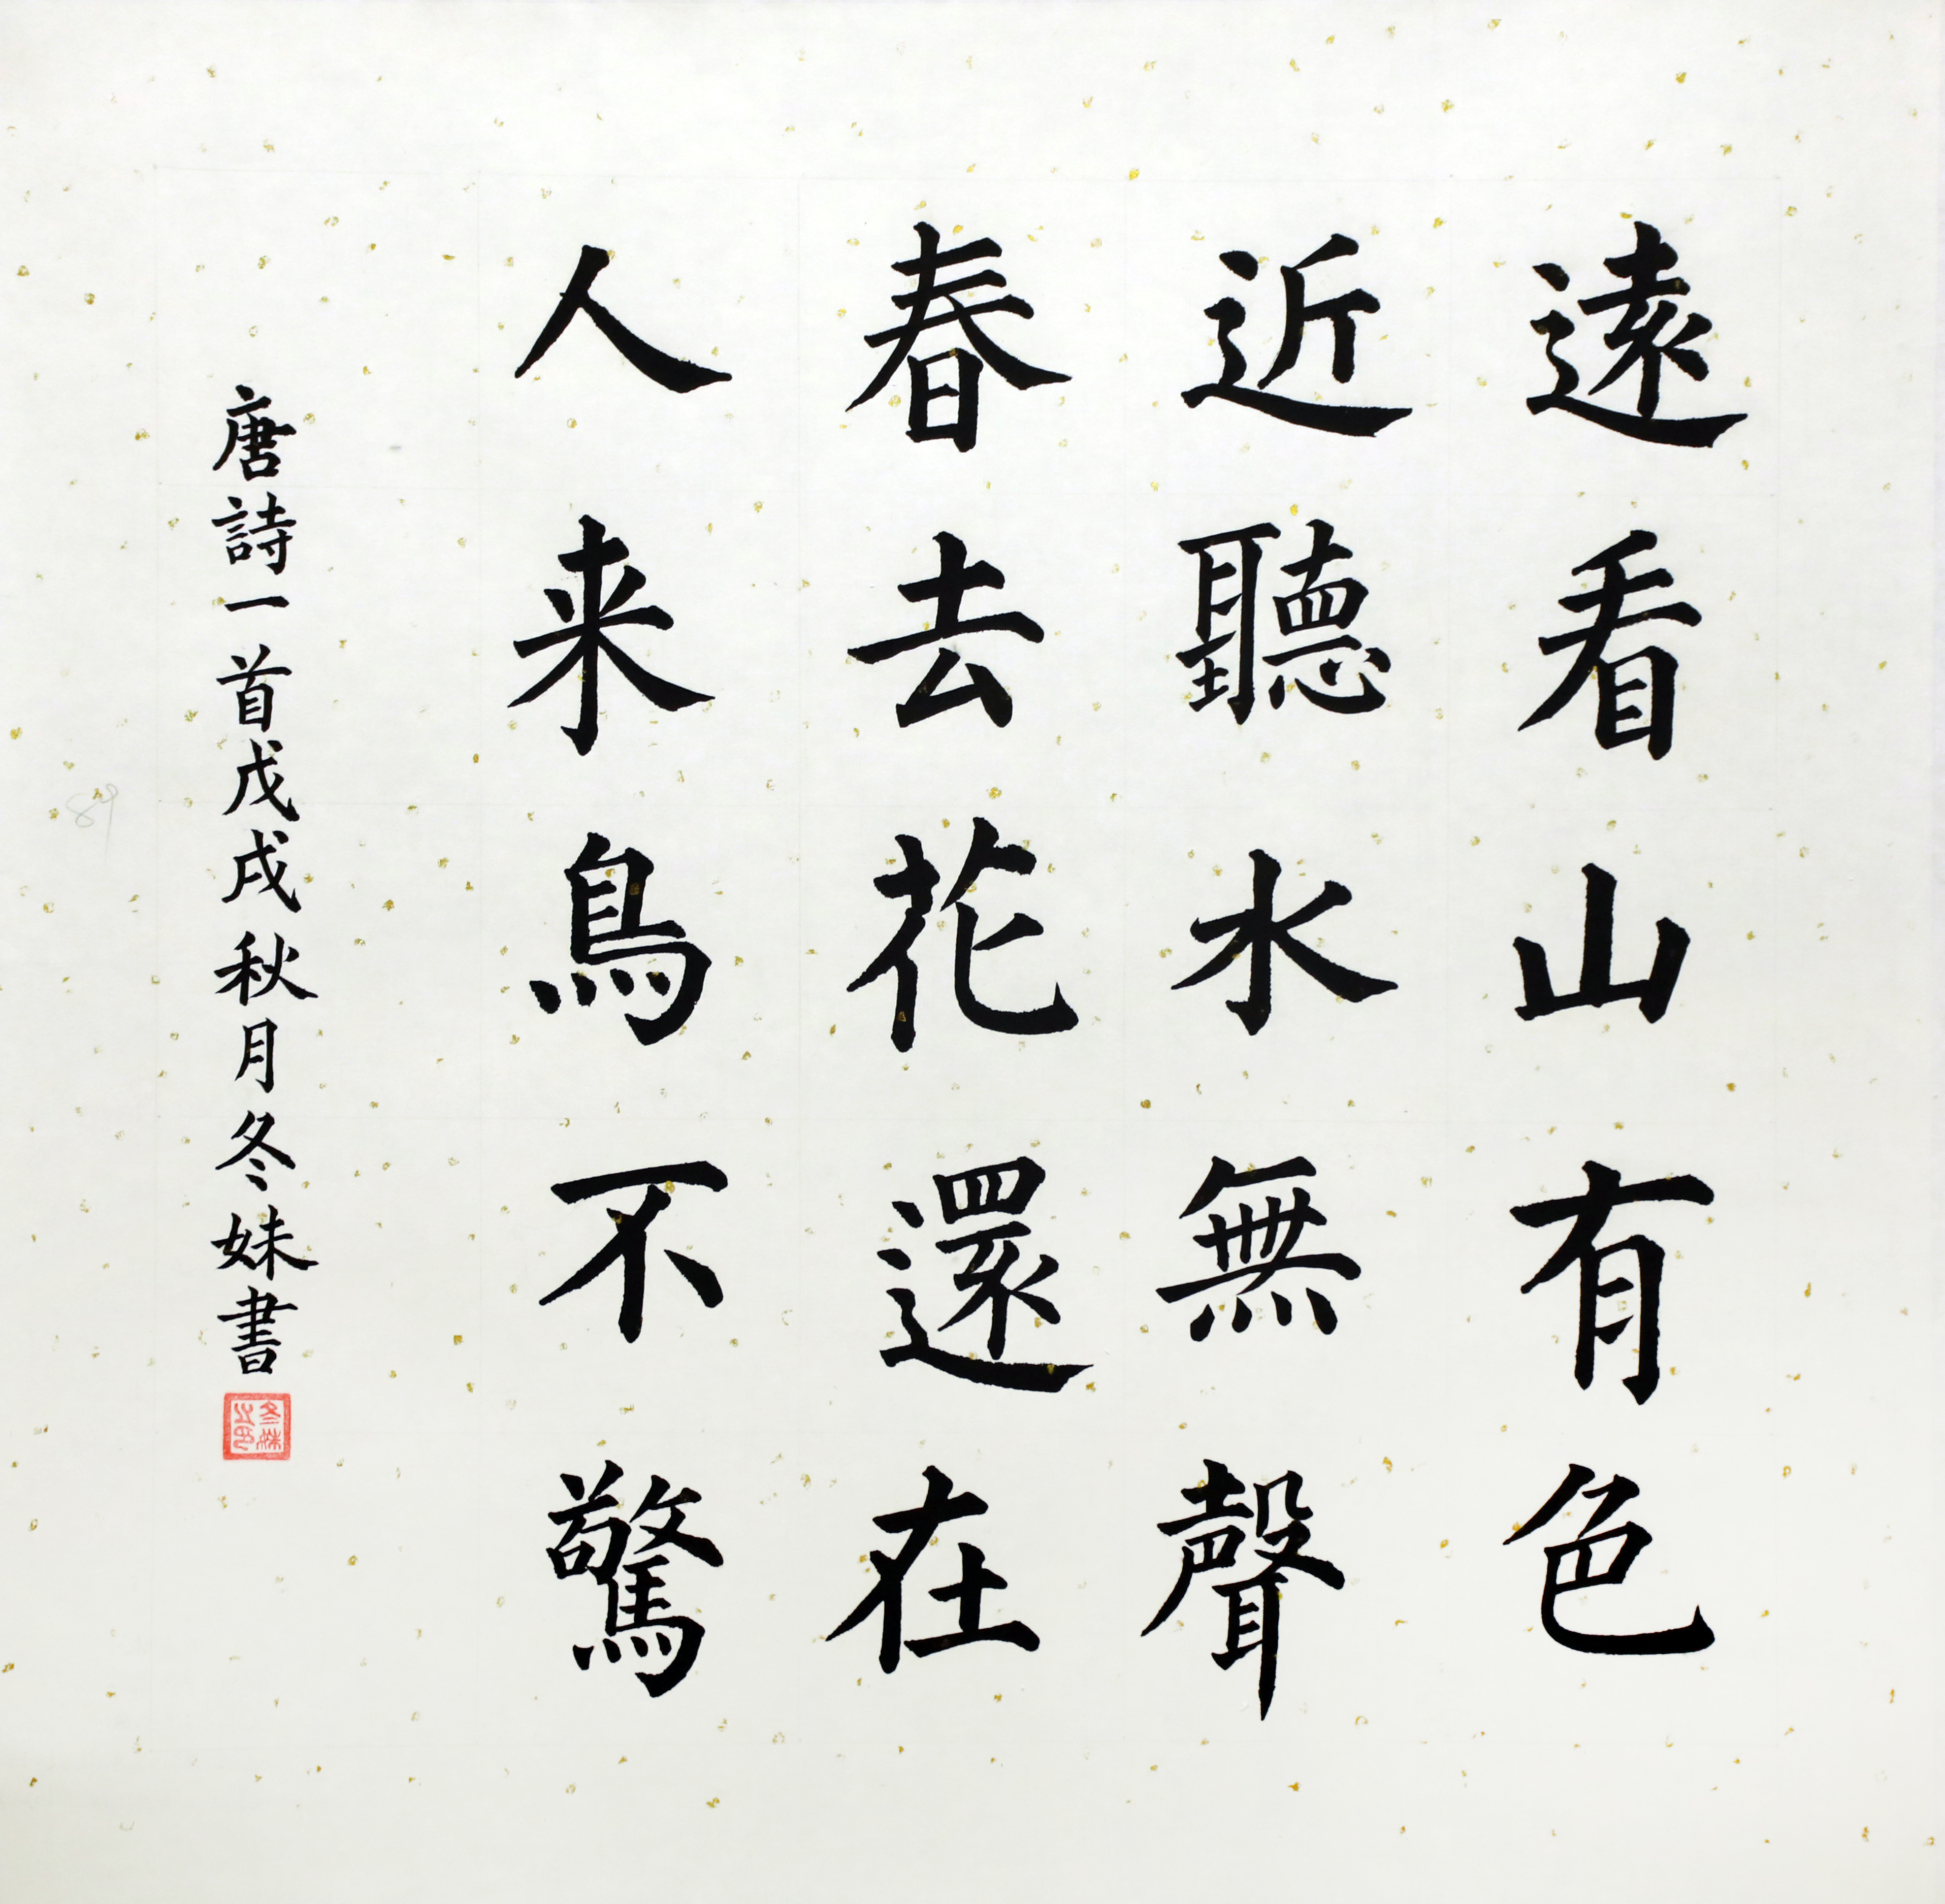 遠看山有色
近聽水無聲
春去花還在
人来鳥不驚
唐詩一首戊戌秋月冬妹書
冬妹之印
89